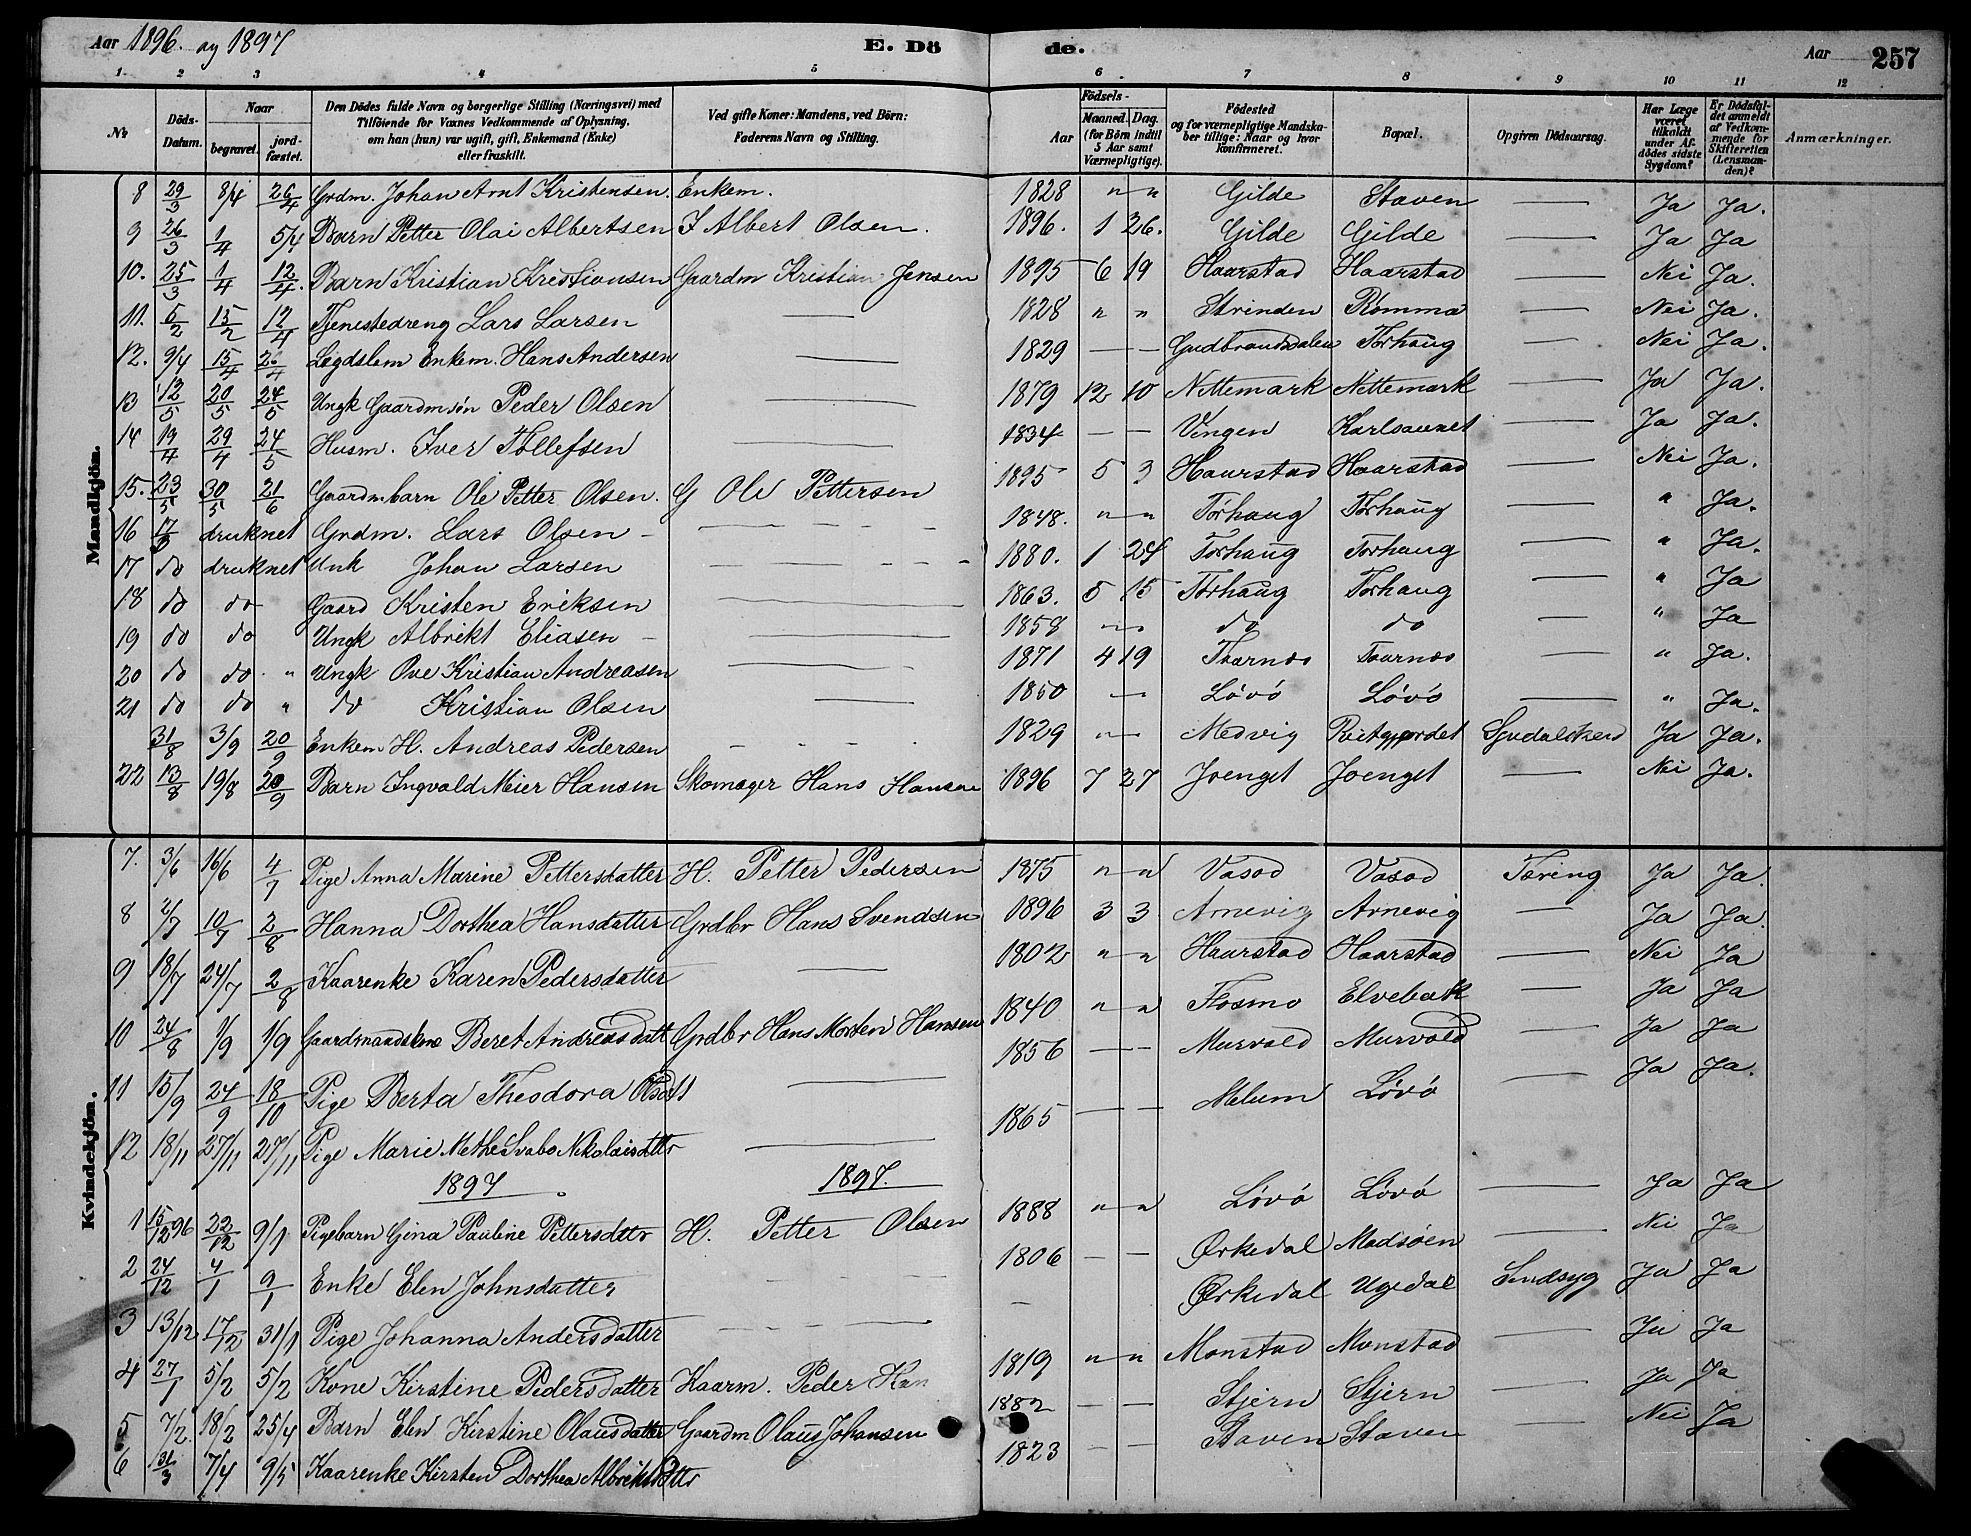 Aar 1896. og 1897 E. Dö de. Aar 257
1 2 3 4 5 6 7 8 9 10 11 12
No
Döds-Datum.
Naar
begravet. jord-fæstet.
Den Dödes fulde Navn og borgerlige Stilling (Næringsvei) med
Tilföiende for Voxnes Vedkommende af Oplysning.
om han (hun) var ugift, gift, Enkemand (Enke)
eller fraskilt.
Ved gifte Koner: Mandens, ved Börn:
Faderens Navn og Stilling.
Födsels-
Aar
Maaned. Dag.
(for Börn indtil
5 Aar samt
Værnepligtige).
Födested
og for værnepligtige Mandska-
ber tillige: Naar og hvor
konfirmeret.
Bopæl.
Opgiven Dödsaarsag.
Har Læge
været
tilkaldt
under Af-
dödes sidste
Sygdom?
Er Dödsfal-
det anmeldt
af Vedkom-
mende for
Skifteretten
(Lensman-
den)?
Anmærkninger.
Mandkjön.
8 29/3 8/4 26/4 Grdm. Johan Arnt Kristensen. Enkem. 1828 " " Gilde Staven — Ja Ja.
9 26/3 1/4 5/4 Barn Petter Olai Albertsen I Albert Olsen. 1896. 1 26. Gilde Gilde — Ja Ja
10. 25/3 1/4 12/4. Barn Kristian Kristiansen Gaardm Kristian Jensen 1895 6 19 Haarstad Haarstad — Nei Ja.
11. 6/2 15/2 12/4 Tjenestedreng Lars Larsen — 1828 " " Strinden Romma — Nei Ja.
12. 9/4 15/4 26/4 Lægdslem Enkem. Hans Andersen — 1829 — — Gudbrandsdalen Torhaug — Nei Ja.
13 12/5 20/5 24/5 Ungk Gaardmsøn Peder Olsen — 1879 12 10 Nittemark Nittemark — Ja Ja.
14 19/4 29/4 24/5 Husm. Iver Tollefsen — 1834 — — Vingen Karlsaunet — Ja Ja.
15. 23/5 30/5 21/6 Gaardmbarn Ole Petter Olsen. G Ole Pettersen 1895 5 3 Haarstad Haarstad — Nei Ja.
16 druknet Grdm. Lars Olsen — 1848. " " Torhaug Torhaug — " Ja.
17 do druknet Unk Johan Larsen — 1880. 1 24 Torhaug Torhaug — " Ja.
18 do do Gaard Kristen Eriksen — 1863. 5 15 Torhaug Torhaug — " Ja
19 do do " Ungk Albrikt Eliasen — 1858 — do do " Ja
20 do do " Ungk Ove Kristian Andreasen — 1871 4 19 Taarnes Taarnes " Ja.
21 do do " do Kristian Olsen — 1850 — Lövö Lövö — " Ja.
31/8 3/9 20/9 Enkem H. Andreas Pedersen — 1829 — Medvig Ja Ja.
22 13/8 19/8 20/9 Barn Ingvald Meier Hansen Skomager Hans Hansen 1896 7 27 Joenget Joenget — Nei Ja.
Kvindekjön.
7. 3/6 16/6 4/7 Pige Anna Marine Pettersdatter H. Petter Pedersen 1875 " " Vasød Vasød Tæring Ja Ja.
8 2/7 10/7 2/8 Hanna Dorthea Hansdatter Grdbr Hans Svendsen 1896 3 3 Arnevig Arnevig — Ja Ja.
9 18/7 24/7 2/8 Kaarenke Karen Pedersdatter — 1802 " " Haarstad Haarstad — Nei Ja
10 24/8 1/9 1/9 Gaardmandskone Beret Andreasdatt Grdbr Hans Morten Hansen 1840 " " Flosmo Elvebak — Ja Ja
11 15/9 24/9 18/10 Pige Berta Theodora Olsdtt — 1856 — — Murvold Murvold — Ja Ja
12 18/11 27/11 27/11 Pige Marie Methe Svabo Nikolaisdttr — 1865 — — Melum Lövö — Ja Ja.
1897 1897.
1 15/12 96 22/12 9/1 Pigebarn Gina Pauline Pettersdttr H. Petter Olsen 1888 " " Lövö Lövö — Ja Ja
2 24/12 4/1 9/1 Enke Elen Johnsdatter — 1806 — — Ørkedal Madsøen — Nei Ja
3 13/12 17/12 31/1 Pige Johanna Andersdatter — — Ørkedal Ugedal Sindsyg Ja Ja
4 27/1 5/2 5/2 Kone Kirstine Pedersdatter Kaarm. Peder Han 1819 " " Monstad Monstad — Ja Ja
5 7/2. 18/2 25/4 Barn Elen Kirstine Olausdatter Gaardm Olaus Johansen 1882 — — Stjern Stjern — Ja Ja
6 31/3 7/4 9/5 Kaarenke Kirsten Dorthea Albriktsdttr 1823 — — Staven Staven — Nei Ja